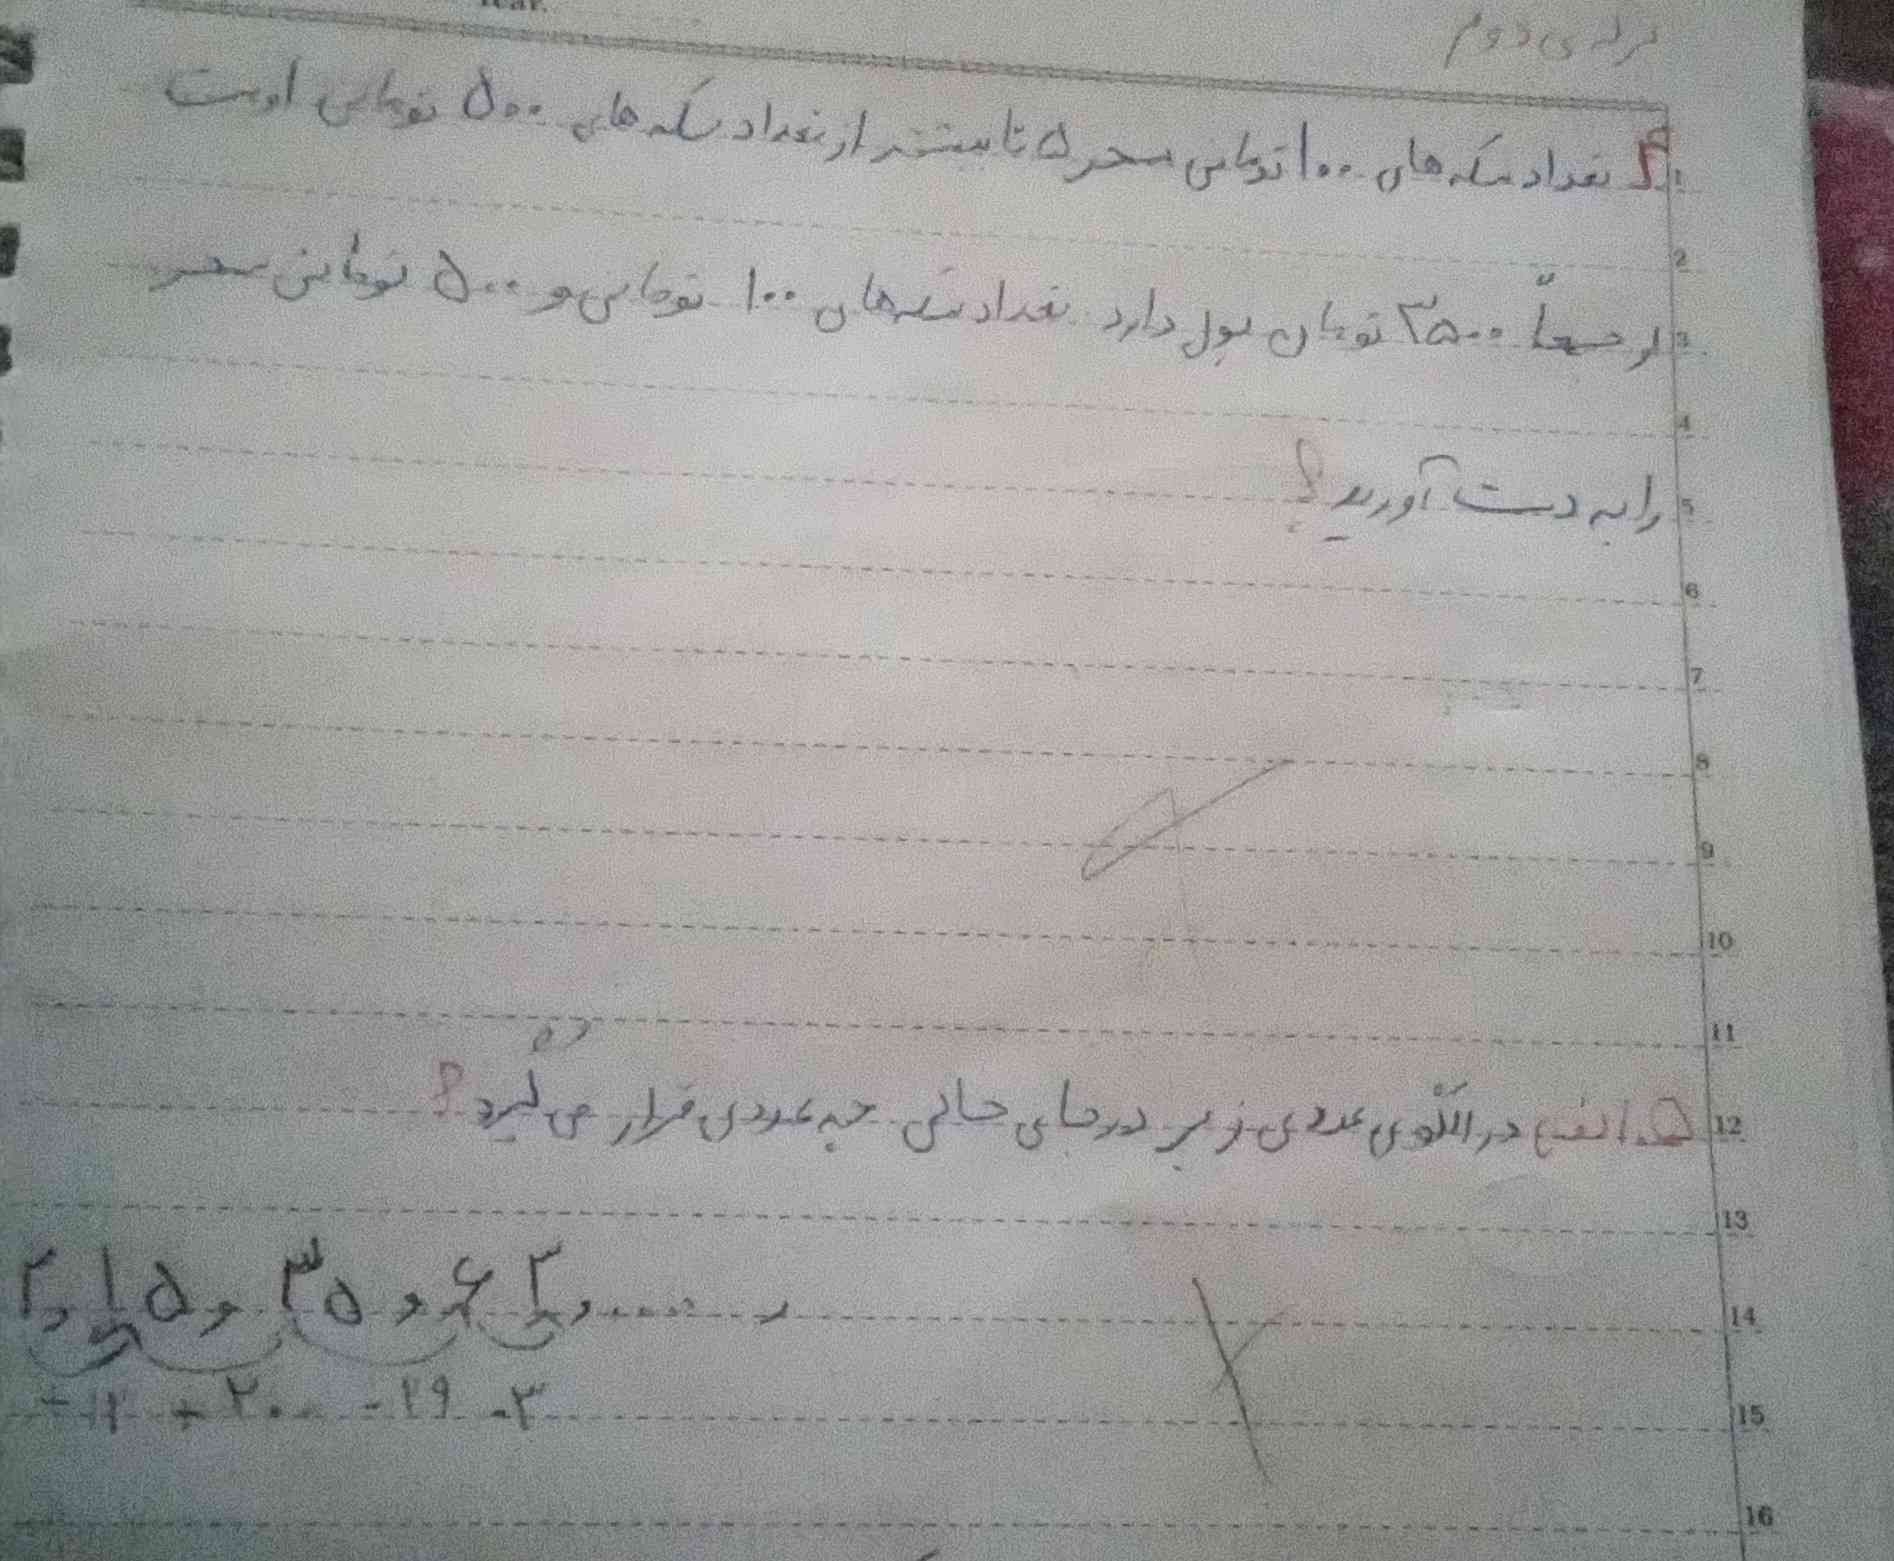 Year.
برگه ی دوم
۴. تعداد سکه های ۱۰۰ تومانی سحر ۵ تا بیشتر از تعداد سکه های ۵۰۰ تومانی اوست
او جمعاً ۳۵۰۰ تومان پول دارد تعداد سکه های ۱۰۰ تومانی و ۵۰۰ تومانی سحر
را به دست آورید؟
۵. الف) در الگوی عددی زیر در جای خالی چه عددی قرار می گیرد؟
۳, ۱۵, ۳۵, ۶۳, ......,
+ ۱۲ + ۲۰
1
2
3
4
5
6
7
8
9
10
11
12
13
14
15
16